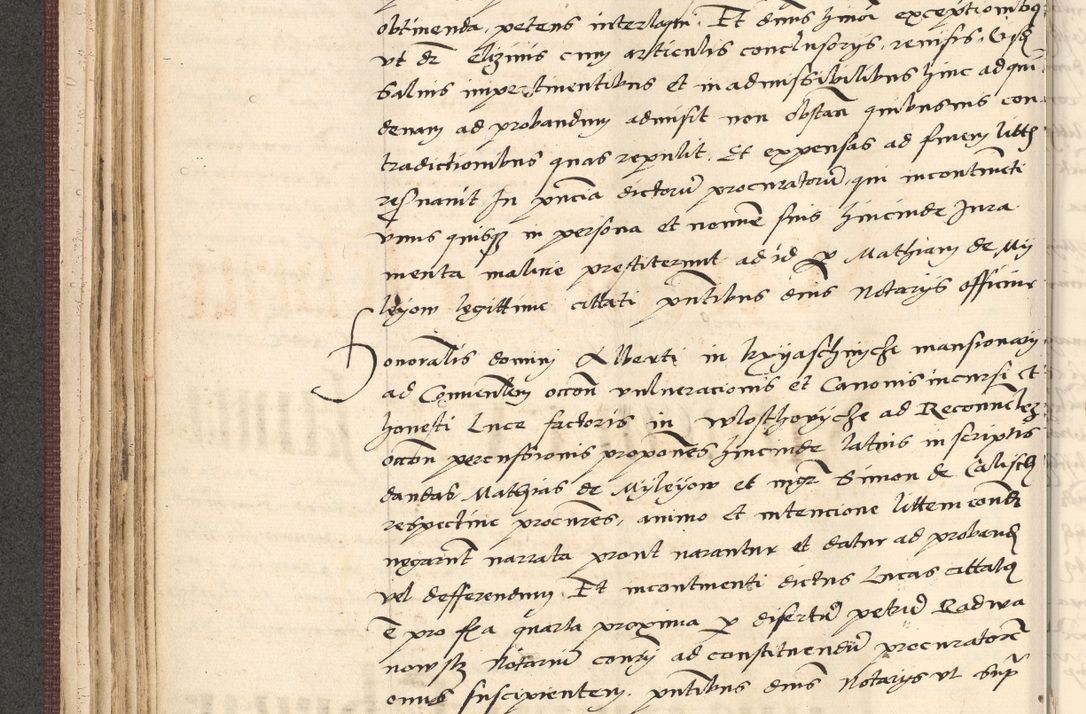 obtinenda petens interloqui Et dnus hmoi exceptionibus
ut dr Elizinus cum articulis conclusorijs, revisis,
Salvis impertinentibus et inadmissibilibus hinc ad quin
denam ad probandum admisit non obstan quibusvis con
tradictionibus quas repulit. Et expensas ad finem littis
resrvavit In pncia dictorum procuratorum, qui incontinenti
unus quisque in persona et nomine suis hincinde Jura
menta malicie prestiterunt ad id per Mathiam de My
leyow legittime cittati pntibus dnis Notarijs officinis
Honorabilis domini Alberti in kxyaschnyche mansionarij
ad Conventem occon vulneracionis et Canonis incursi Et
honesti Luce factoris in Wlosthovyche ad Reconvenc
occon percussionis propones hincinde latius in scriptis
dandas Mathias de Myleyow et mgr Simon de Calisch
respective procures, animo et intencione littem contest
negarunt narrata prout narantur et datur ad proband
vel defferendum. Et incontinenti dictus Lucas cittatus
E pro fxa quarta proxima per disertum petrum Radwa
nowsky Notarium constrij ad constituendum procuratorem
onus suscipientem, pntibus dnis Notarijs ut supra